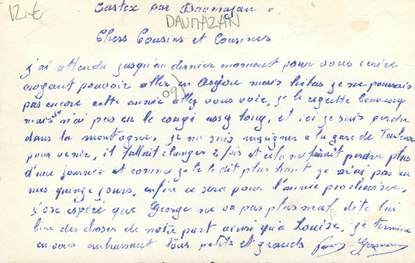 12 €
Castex par Daumazan
DAUMAZAN
Chers Cousins et Cousines
j'ai attendu jusqu'au dernier moment pour vous écrire
croyant pouvoir aller en Anjou mais hélas je ne pourrais
09
pas encore cette année allez vous voir, je le regrette beaucoup
mais n'ai pas eu le congé assez long, et ici je suis perdu
dans la montagne, je me suis à la gare de
pour venir, il fallait changer 2 fois et cela me faisait perdre plus
d'une journée et comme je te le dit plus haut je n'ai pas eu
mes quinze jours, enfin ce sera pour l'année prochaine,
j'ose espéré que George ne va pas plus mal, dite lui
bien des choses de notre part ainsi qu'à Louise, je termine
en vous embrassant tous petits et grands